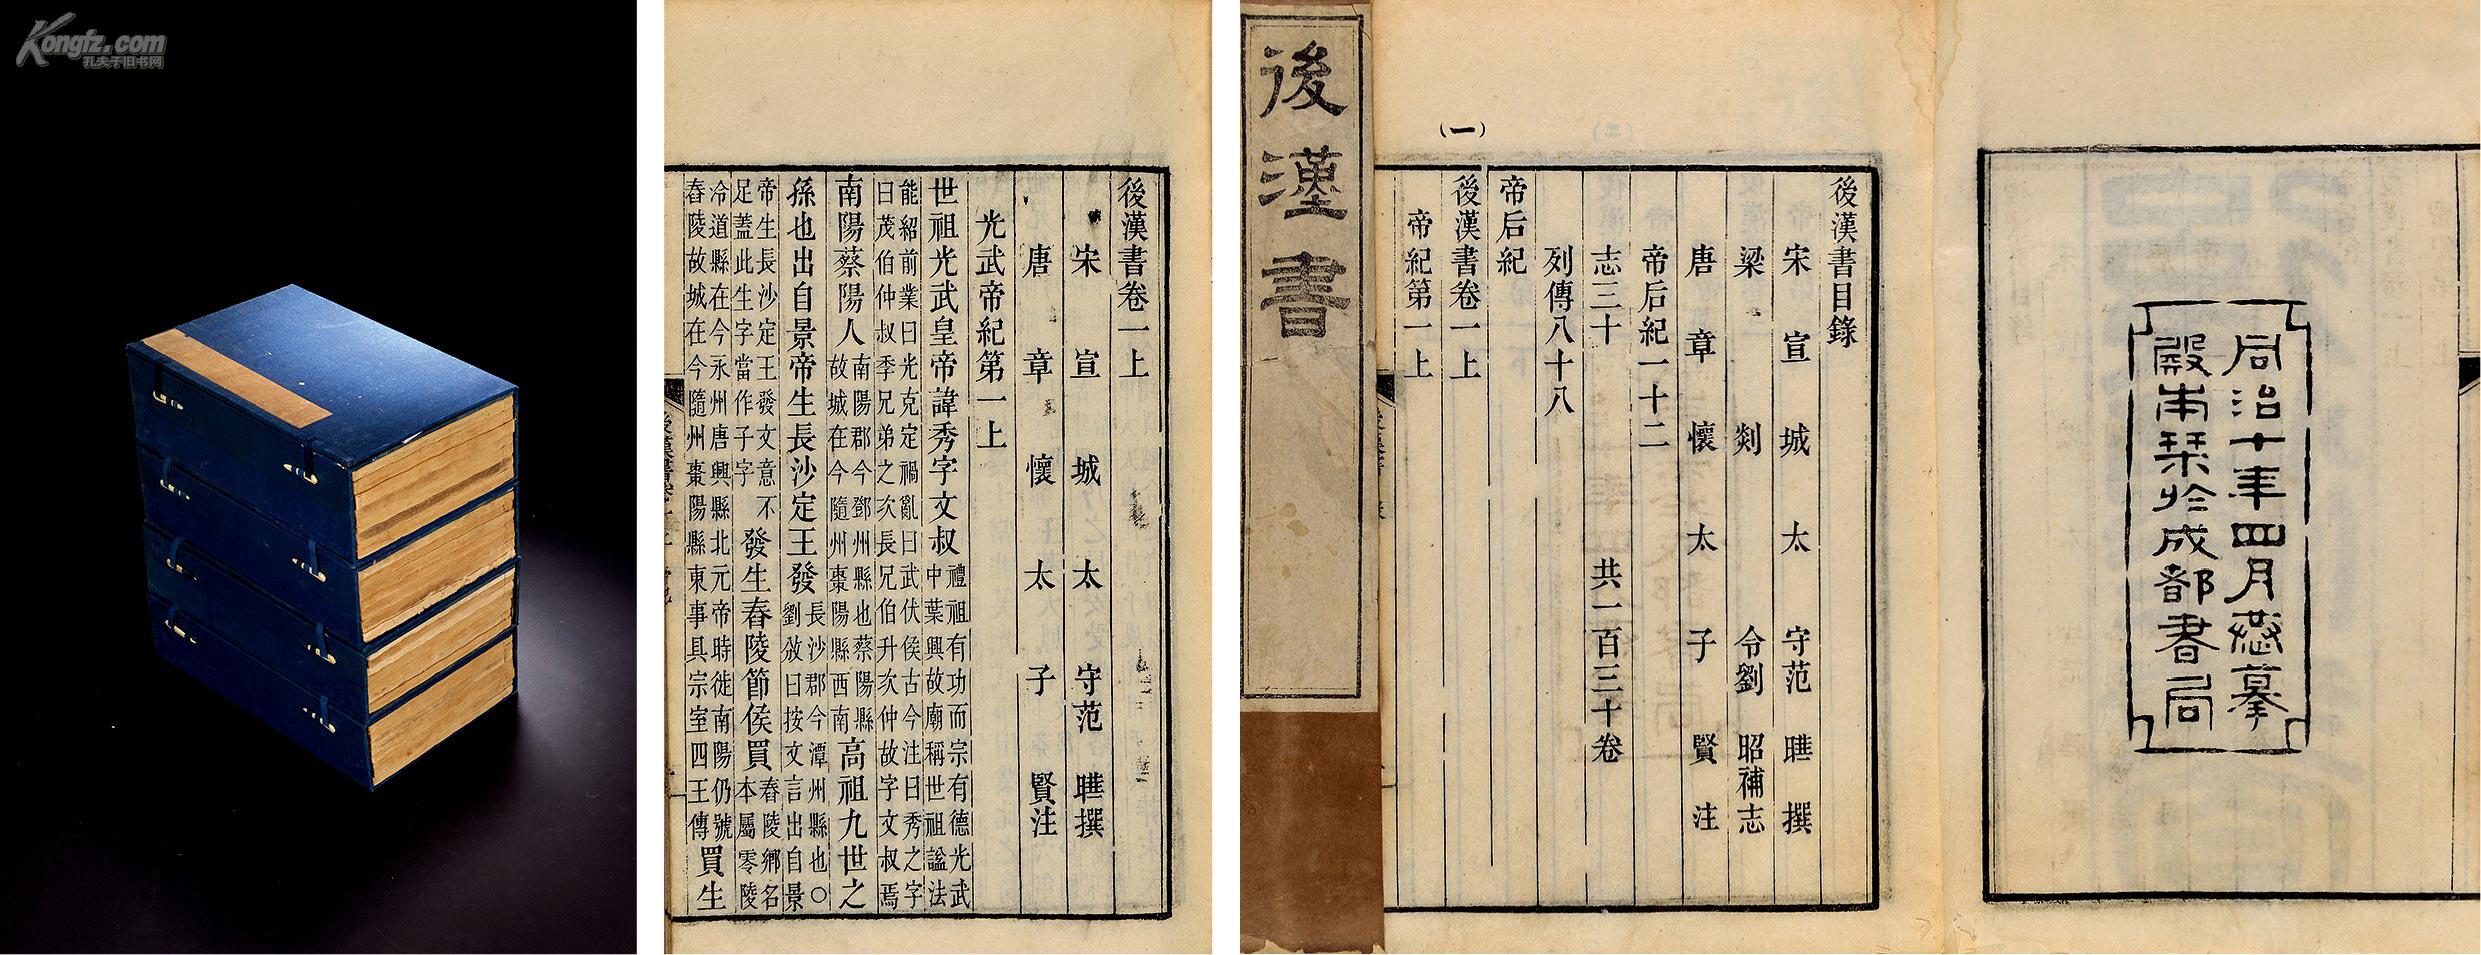 Kongfz.com
孔夫子旧书网
後漢書卷一上
宋宣城太守范曄撰
唐章懷太子賢注
光武帝紀第一上
世祖光武皇帝諱秀字文叔禮祖有功而宗有德光武中葉興故廟稱世祖諡法
能紹前業曰光克定禍亂曰武伏侯古今注曰秀之字曰茂伯仲叔季兄弟之次長兄伯升次仲故字文叔焉
南陽蔡陽人南陽郡今鄧州縣也蔡陽縣故城在今隨州棗陽縣西南高祖九世之
孫也出自景帝生長沙定王發長沙郡今潭州縣也○劉攽曰按文言出自景
帝生長沙定王發文意不足蓋此生字當作子字發生舂陵節侯買舂陵鄉名本屬零陵
冷道縣在今永州唐興縣北元帝時徙南陽仍號舂陵故城在今隨州棗陽縣東事具宗室四王傳買生
後漢書
(一)
後漢書目錄
宋宣城太守范曄撰
梁剡令劉昭補志
唐章懷太子賢注
帝后紀一十二
志三十 共一百三十卷
列傳八十八
帝后紀
後漢書卷一上
帝紀第一上
同治十年四月恭摹
殿本栞於成都書局